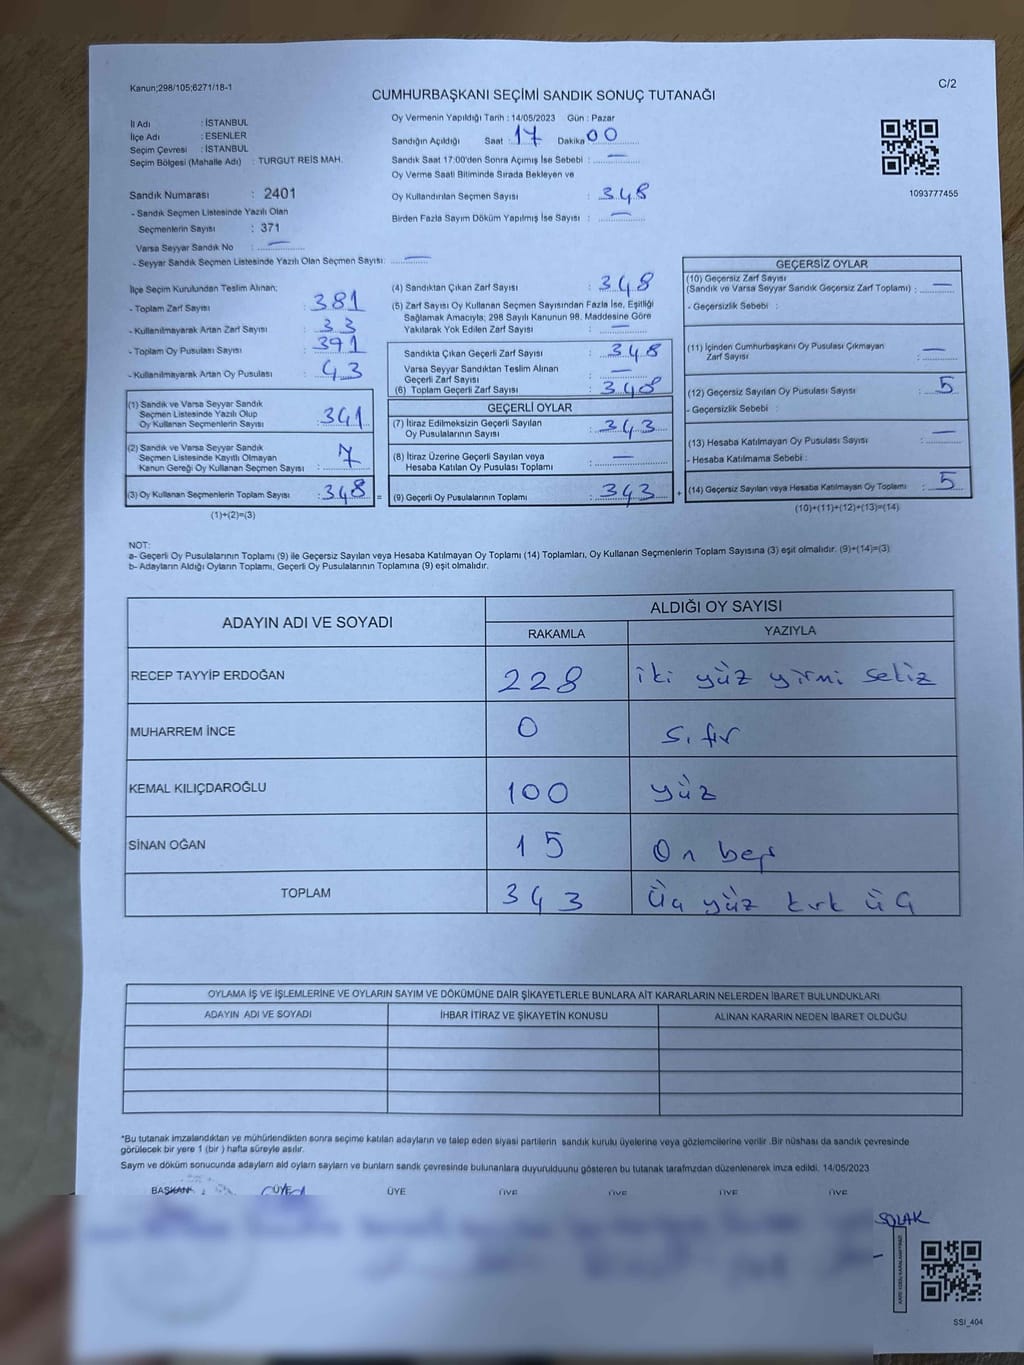 Kanun;298/105;6271/18-1
C/2
CUMHURBAŞKANI SEÇİMİ SANDIK SONUÇ TUTANAĞI
İl Adı : İSTANBUL
İlçe Adı : ESENLER
Seçim Çevresi : İSTANBUL
Seçim Bölgesi (Mahalle Adı) : TURGUT REİS MAH.
Oy Vermenin Yapıldığı Tarih : 14/05/2023 Gün : Pazar
Sandığın Açıldığı Saat : 17 Dakika 00
Sandık Saat 17:00'den Sonra Açımış İse Sebebi : —
Oy Verme Saati Bitiminde Sırada Bekleyen ve
Oy Kullandırılan Seçmen Sayısı : 348
Birden Fazla Sayım Döküm Yapılmış İse Sayısı : —
1093777455
Sandık Numarası : 2401
- Sandık Seçmen Listesinde Yazılı Olan
Seçmenlerin Sayısı : 371
Varsa Seyyar Sandık No : —
- Seyyar Sandık Seçmen Listesinde Yazılı Olan Seçmen Sayısı: —
İlçe Seçim Kurulundan Teslim Alınan;
- Toplam Zarf Sayısı : 381
- Kullanılmayarak Artan Zarf Sayısı : 33
- Toplam Oy Pusulası Sayısı : 391
- Kullanılmayarak Artan Oy Pusulası : 43
(1) Sandık ve Varsa Seyyar Sandık
Seçmen Listesinde Yazılı Olup
Oy Kullanan Seçmenlerin Sayısı : 341
(2) Sandık ve Varsa Seyyar Sandık
Seçmen Listesinde Kayıtlı Olmayan
Kanun Gereği Oy Kullanan Seçmen Sayısı : 7
(3) Oy Kullanan Seçmenlerin Toplam Sayısı : 348 =
(1)+(2)=(3)
(4) Sandıktan Çıkan Zarf Sayısı : 348
(5) Zarf Sayısı Oy Kullanan Seçmen Sayısından Fazla İse, Eşitliği
Sağlamak Amacıyla; 298 Sayılı Kanunun 98. Maddesine Göre
Yakılarak Yok Edilen Zarf Sayısı : —
Sandıkta Çıkan Geçerli Zarf Sayısı : 348
Varsa Seyyar Sandıktan Teslim Alınan
Geçerli Zarf Sayısı : —
(6) Toplam Geçerli Zarf Sayısı : 348
GEÇERLİ OYLAR
(7) İtiraz Edilmeksizin Geçerli Sayılan
Oy Pusulalarının Sayısı : 343
(8) İtiraz Üzerine Geçerli Sayılan veya
Hesaba Katılan Oy Pusulası Toplamı : —
(9) Geçerli Oy Pusulalarının Toplamı : 343 +
GEÇERSİZ OYLAR
(10) Geçersiz Zarf Sayısı
(Sandık ve Varsa Seyyar Sandık Geçersiz Zarf Toplamı) : —
- Geçersizlik Sebebi :
(11) İçinden Cumhurbaşkanı Oy Pusulası Çıkmayan
Zarf Sayısı : —
(12) Geçersiz Sayılan Oy Pusulası Sayısı : 5
- Geçersizlik Sebebi :
(13) Hesaba Katılmayan Oy Pusulası Sayısı : —
- Hesaba Katılmama Sebebi :
(14) Geçersiz Sayılan veya Hesaba Katılmayan Oy Toplamı : 5
(10)+(11)+(12)+(13)=(14)
NOT:
a- Geçerli Oy Pusulalarının Toplamı (9) ile Geçersiz Sayılan veya Hesaba Katılmayan Oy Toplamı (14) Toplamları, Oy Kullanan Seçmenlerin Toplam Sayısına (3) eşit olmalıdır. (9)+(14)=(3)
b- Adayların Aldığı Oyların Toplamı, Geçerli Oy Pusulalarının Toplamına (9) eşit olmalıdır.
ADAYIN ADI VE SOYADI
ALDIĞI OY SAYISI
RAKAMLA YAZIYLA
RECEP TAYYİP ERDOĞAN 228 iki yüz yirmi sekiz
MUHARREM İNCE 0 sıfır
KEMAL KILIÇDAROĞLU 100 yüz
SİNAN OĞAN 15 On beş
TOPLAM 343 Üç yüz kırk üç
OYLAMA İŞ VE İŞLEMLERİNE VE OYLARIN SAYIM VE DÖKÜMÜNE DAİR ŞİKAYETLERLE BUNLARA AİT KARARLARIN NELERDEN İBARET BULUNDUKLARI
ADAYIN ADI VE SOYADI İHBAR İTİRAZ VE ŞİKAYETİN KONUSU ALINAN KARARIN NEDEN İBARET OLDUĞU
*Bu tutanak imzalandıktan ve mühürlendikten sonra seçime katılan adayların ve talep eden siyasi partilerin sandık kurulu üyelerine veya gözlemcilerine verilir .Bir nüshası da sandık çevresinde
görülecek bir yere 1 (bir ) hafta süreyle asılır.
Sayım ve döküm sonucunda adayların ald oyların sayların ve bunların sandk çevresinde bulunanlara duyurulduunu gösteren bu tutanak tarafmzdan düzenlenerek imza edildi. 14/05/2023
BAŞKAN ÜYE ÜYE ÜYE ÜYE ÜYE ÜYE
SOLAK
SSI_404